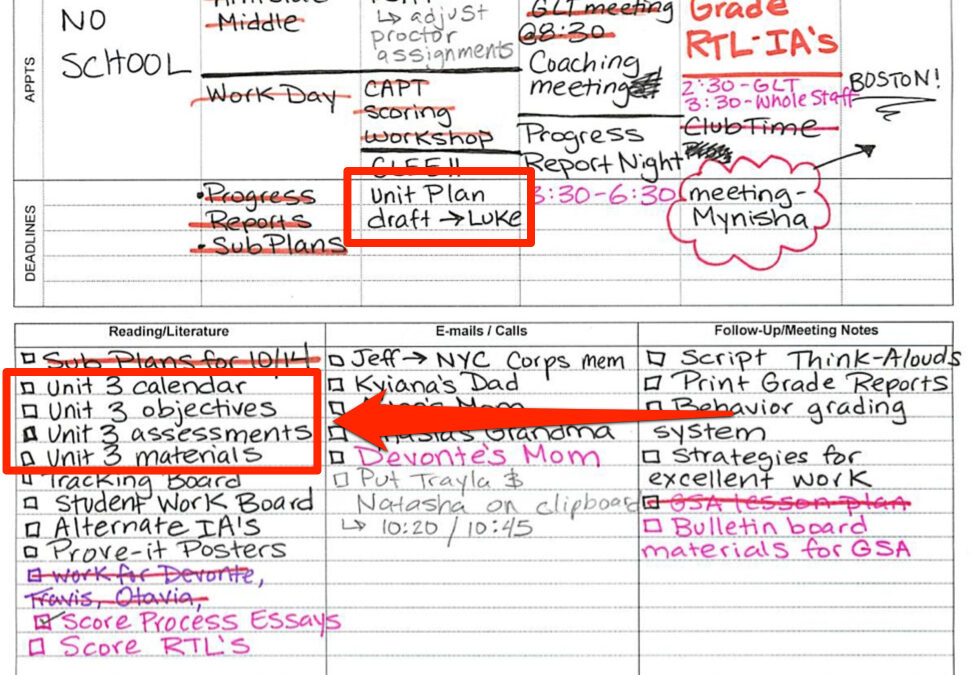 NO
SCHOOL
APPTS
Middle
Work Day
↳ adjust
proctor
assignments
CAPT
scoring
workshop
GLT meeting
@8:30
Coaching
meeting
Progress
Report Night
3:30-6:30
Grade
RTL-IA's
2:30-GLT
3:30-Whole Staff
Club Time
BOSTON!
DEADLINES
•Progress
Reports
•Sub Plans
unit Plan
draft → Luke
meeting-
Mynisha
Reading/Literature
Sub Plans for 10/14
Unit 3 calendar
Unit 3 objectives
Unit 3 assessments
Unit 3 materials
Tracking Board
Student Work Board
Alternate IA's
Prove-it Posters
work for Devonte,
Travis, Otavia,
Score Process Essays
Score RTL's
E-mails / Calls
Jeff → NYC Corps mem
Kyiana's Dad
Mom
Grandma
Devonte's Mom
Put Trayla &
Natasha on clipboard
↳ 10:20 / 10:45
Follow-Up/Meeting Notes
Script Think-Alouds
Print Grade Reports
Behavior grading
system
Strategies for
excellent work
GSA lesson plan
Bulletin board
materials for GSA